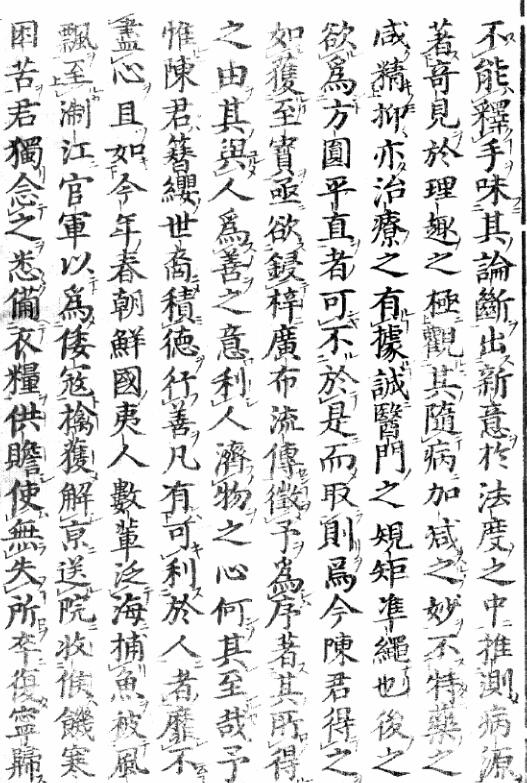 不能釋手味其論斷出新意於法度之中推測病源
著竒見於理趣之極觀其隨病加減之妙不特藥之
咸精抑亦治療之有據誠醫門之規矩準繩也後之
欲爲方圓平直者可不於是而取則焉今陳君得之
如獲至寳亟欲鋟梓廣布流傳徵予爲序著其所得
之由其與人爲善之意利人濟物之心何其至哉予
惟陳君簪纓世裔積德行善凡有可利於人者靡不
盡心且如今年春朝鮮國夷人數輩泛海捕魚被風
飄至淛江官軍以爲倭寇擒獲解京送院收候饑寒
困苦君獨念之悉備衣糧供贍使無失所卒復寧歸